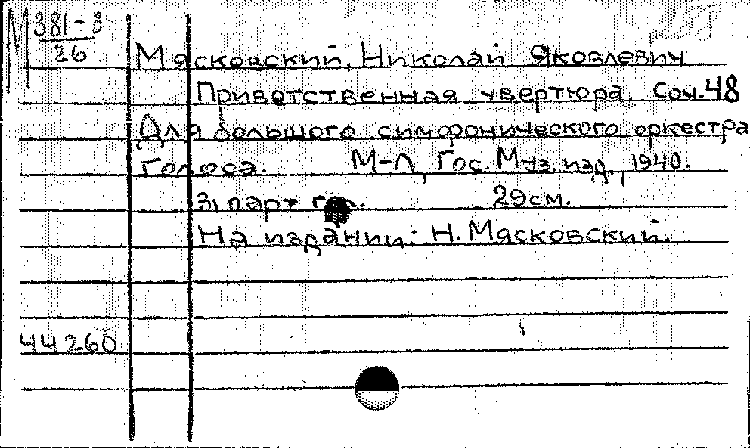 М 381-3
26
Мясковский, Николай Яковлевич
Приветственная увертюра. Соч. 48
Для большого симфонического оркестра
Голоса. М-Л, Гос. Муз. изд., 1940.
31 парт 29см.
На издании: Н. Мясковский.
44260